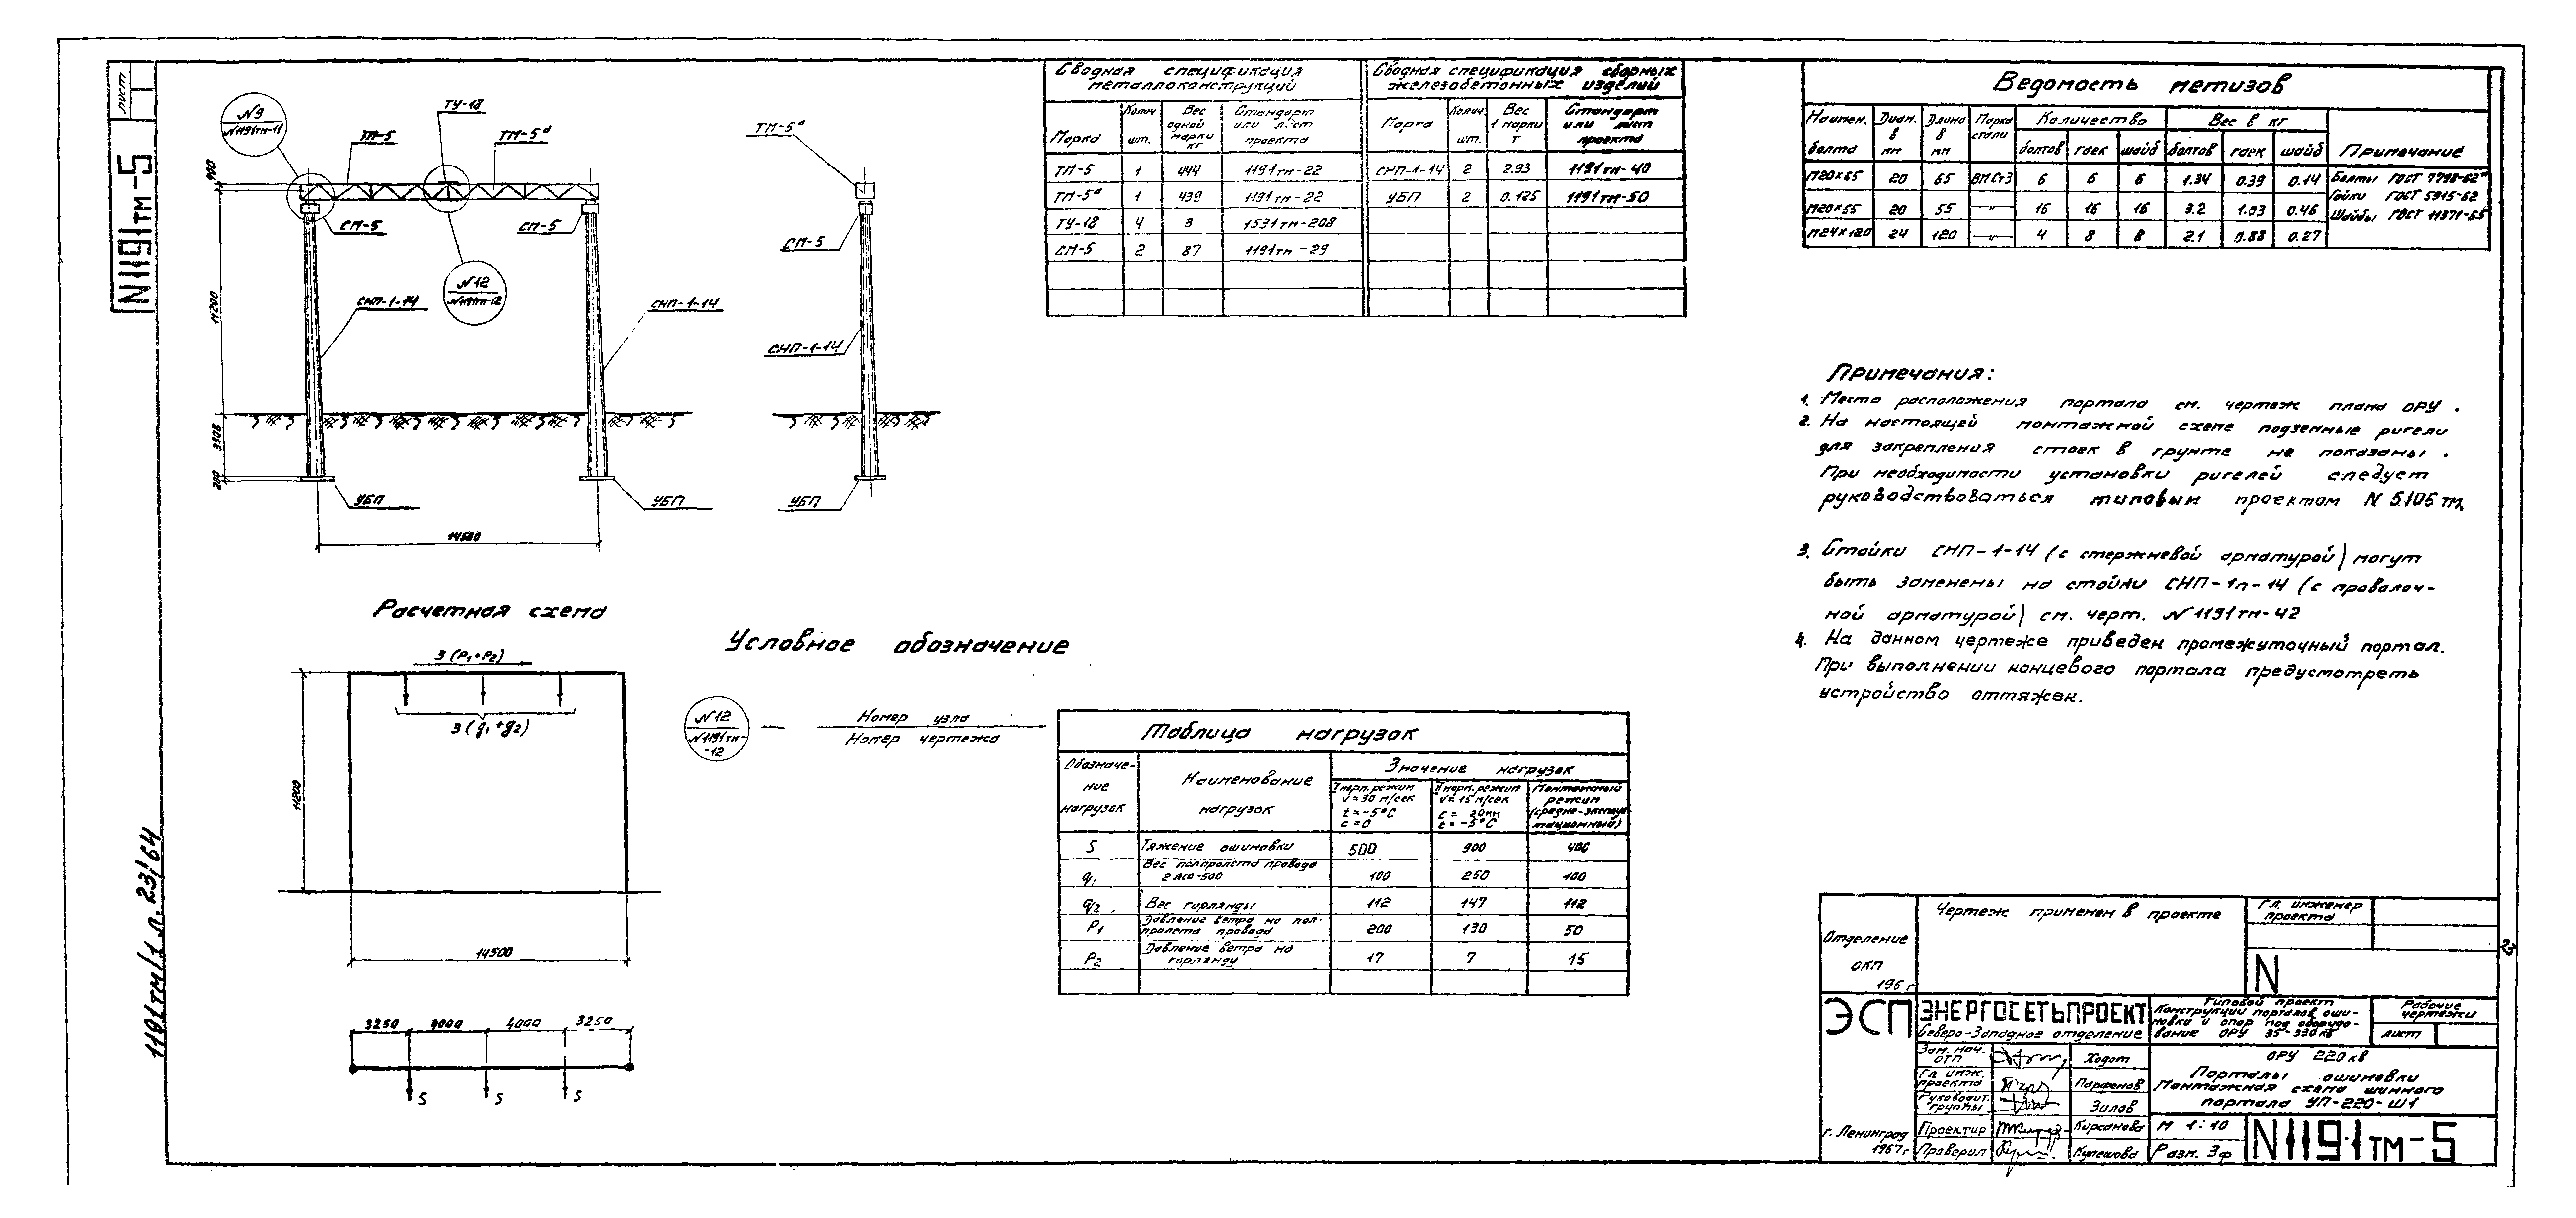 лист
N1191тм-5
1191тм/1 л. 23/64
N9
N1191тм-11
ТУ-18
ТМ-5
ТМ-5а
СМ-5
СМ-5
N12
N1191тм-12
СНП-1-14
СНП-1-14
УБП
УБП
400
11200
3308
200
14500
ТМ-5а
СМ-5
СНП-1-14
УБП
Расчетная схема
3 (P1+P2)
3 (q1+q2)
11200
14500
3250 4000 4000 3250
S S S
Условное обозначение
N12
N1191тм-
-12
—
Номер узла
Номер чертежа
Сводная спецификация
металлоконструкций
Марка
Колич
шт.
Вес
одной
марки
кг
Стандарт
или лист
проекта
ТМ-5 1 444 1191тм-22
ТМ-5а 1 439 1191тм-22
ТУ-18 4 3 1531тм-208
СМ-5 2 87 1191тм-29
Сводная спецификация сборных
железобетонных изделий
Марка
Колич
шт.
Вес
1 марки
т
Стандарт
или лист
проекта
СНП-1-14 2 2.93 1191тм-40
УБП 2 0.125 1191тм-50
Ведомость метизов
Наимен.
болта
Диам.
в
мм
Длина
в
мм
Марка
стали
Количество
болтов гаек шайб
Вес в кг
болтов гаек шайб
Примечание
М20×65 20 65 ВМСт3 6 6 6 1.34 0.39 0.14
М20×55 20 55 —"— 16 16 16 3.2 1.03 0.46
М24×120 24 120 —"— 4 8 8 2.1 0.88 0.27
Болты ГОСТ 7798-62*
Гайки ГОСТ 5915-62
Шайбы ГОСТ 11371-65
Примечания:
1. Места расположения портала см. чертеж плана ОРУ.
2. На настоящей монтажной схеме подземные ригели
для закрепления стоек в грунте не показаны.
При необходимости установки ригелей следует
руководствоваться типовым проектом N 5105 тм.
3. Стойки СНП-1-14 (с стержневой арматурой) могут
быть заменены на стойки СНП-1п-14 (с проволоч-
ной арматурой) см. черт. N1191тм-42
4. На данном чертеже приведен промежуточный портал.
При выполнении концевого портала предусмотреть
устройство оттяжек.
Таблица нагрузок
Обозначе-
ние
нагрузок
Наименование
нагрузок
Значение нагрузок
I норм. режим
V=30 м/сек
t=-5°C
c=0
II норм. режим
V=15 м/сек
c= 20мм
t=-5°C
Монтажный
режим
(средне-эксплуа
тационный)
S Тяжение ошиновки 500 900 400
q1 Вес полпролета провода
2 АСО-500 100 250 100
q2 Вес гирлянды 112 147 112
P1 Давление ветра на пол-
пролета провода 200 130 50
P2 Давление ветра на
гирлянду 17 7 15
Отделение
ОКП
196 г
Чертеж применен в проекте
Гл. инженер
проекта
N
ЭСП
ЭНЕРГОСЕТЬПРОЕКТ
Северо-Западное отделение
Типовой проект
Конструкции порталов оши-
новки и опор под оборудо-
вание ОРУ 35-330 кв
Рабочие
чертежи
лист
Зам. нач.
ОТП
Ходот
Гл. инж.
проекта
Парфенов
Руководит.
группы
Зилов
Проектир
Кирсанова
Проверил
Кулешова
ОРУ 220 кв
Порталы ошиновки
Монтажная схема шинного
портала УП-220-Ш1
г. Ленинград
1967г
М 1:10
Разм. 3ф
N1191тм-5
23